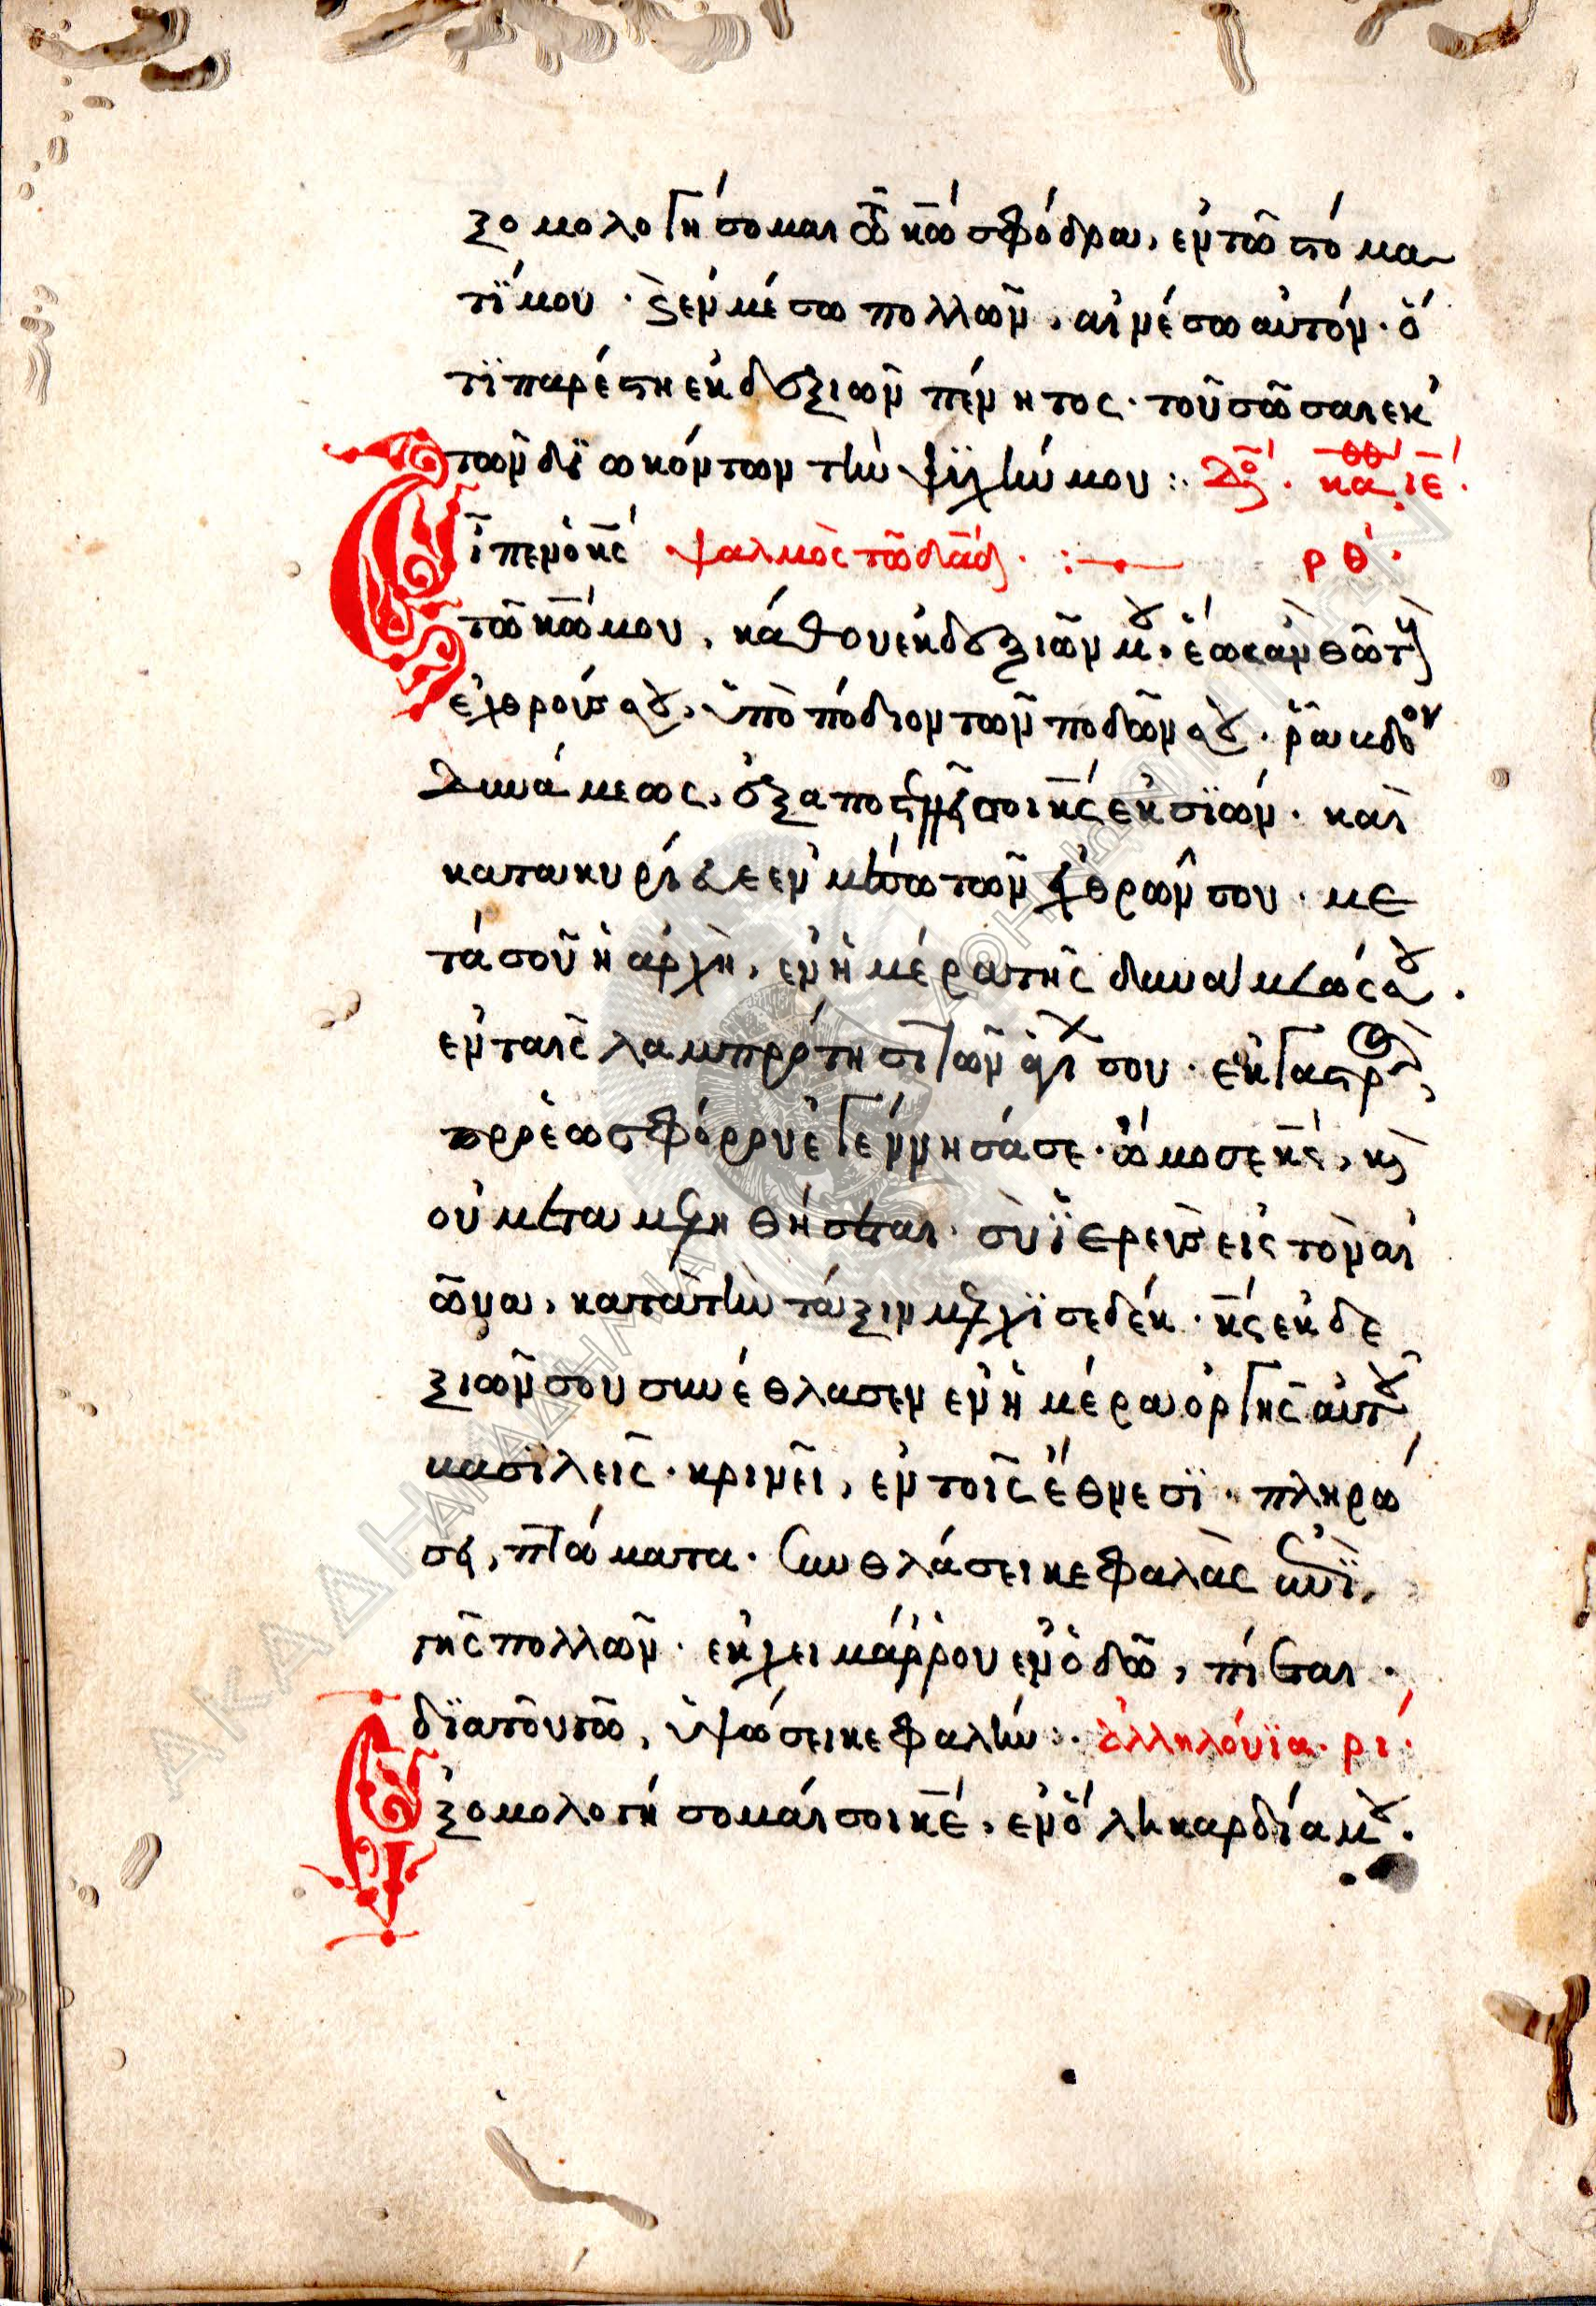 ξομολογήσομαι τῶ κ̅ω̅ σφόδρα, ἐν τῶ στόμα
τί μου · ϗ ἐν μέσω πολλῶν, αἰνέσω αὐτόν · ὅ
τι παρέστη ἐκ δεξιῶν πένητος · τοῦ σῶσαι ἐκ
τῶν διωκόντων τὴν ψυχήν μου : Δό. κα. ιε.
Εἶπεν ὁ κ̅ς̅ ψαλμὸς τῶ δα̅δ · ρθ ·
τῶ κ̅ω̅ μου, κάθου ἐκ δεξιῶν μου, ἕως ἂν θῶ τοὺς
ἐχθρούς σου, ὑποπόδιον τῶν ποδῶν σου · ῥάβδον
δυνάμεως, ἐξαποστελεῖ σοι κ̅ς̅ ἐκ σιών · καὶ
κατακυρίευε ἐν μέσω τῶν ἐχθρῶν σου · με
τά σοῦ ἡ ἀρχὴ, ἐν ἡμέρα τῆς δυνάμεώς σου ·
ἐν ταῖς λαμπρότησι τῶν ἁγί σου · ἐκ γαστρὸς
πρὸ ἑωσφόρου ἐγέννησά σε · ὤμοσε κ̅ς̅, κ
οὐ μεταμεληθήσεται · σὺ ἱερεὺς εἰς τὸν αἰ
ῶνα, κατὰ τὴν τάξιν μελχισεδέκ · κ̅ς̅ ἐκ δε
ξιῶν σου συνέθλασεν ἐν ἡμέρα ὀργῆς αὐτοῦ
βασιλεῖς · κρινεῖ, ἐν τοῖς ἔθνεσι · πληρώ
σει, πτώματα · συνθλάσει κεφαλὰς ἐπὶ
γῆς πολλῶν · ἐκ χειμάρρου ἐν ὁδῶ, πίεται ·
διὰ τοῦτο, ὑψώσει κεφαλήν : · ἀλληλούϊα · ρι ·
Ἐξομολογήσομαί σοι κ̅ε̅, ἐν ὅλη καρδία μου ·